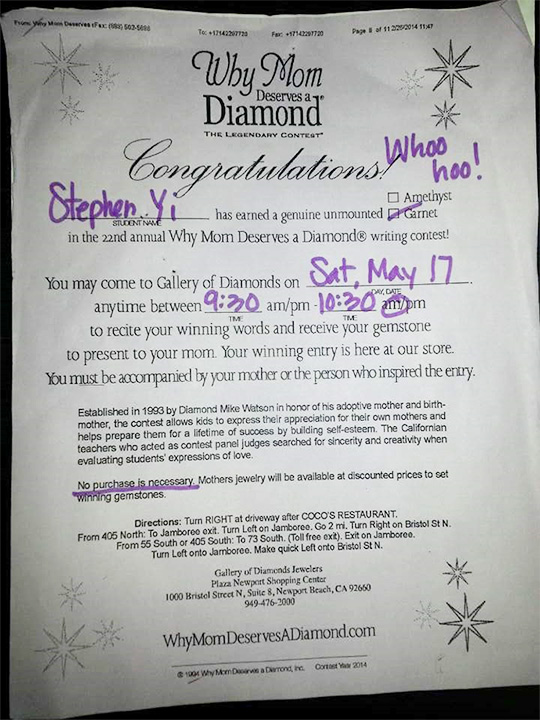 From: Why Mom Deserves Fax: (888) 502-5686 To: +17142297720 Fax: +17142297720 Page 8 of 11 2/25/2014 11:47
Why Mom
Deserves a
Diamond®
THE LEGENDARY CONTEST®
Congratulations! Whoo
hoo!
Stephen Yi has earned a genuine unmounted ☐ Amethyst
STUDENT NAME ☑ Garnet
in the 22nd annual Why Mom Deserves a Diamond® writing contest!
You may come to Gallery of Diamonds on Sat, May 17
DAY, DATE
anytime between 9:30 am/pm - 10:30 am/pm
TIME TIME
to recite your winning words and receive your gemstone
to present to your mom. Your winning entry is here at our store.
You must be accompanied by your mother or the person who inspired the entry.
Established in 1993 by Diamond Mike Watson in honor of his adoptive mother and birth-
mother, the contest allows kids to express their appreciation for their own mothers and
helps prepare them for a lifetime of success by building self-esteem. The Californian
teachers who acted as contest panel judges searched for sincerity and creativity when
evaluating students' expressions of love.
No purchase is necessary. Mothers jewelry will be available at discounted prices to set
winning gemstones.
Directions: Turn RIGHT at driveway after COCO'S RESTAURANT.
From 405 North: To Jamboree exit. Turn Left on Jamboree. Go 2 mi. Turn Right on Bristol St N.
From 55 South or 405 South: To 73 South. (Toll free exit). Exit on Jamboree.
Turn Left onto Jamboree. Make quick Left onto Bristol St N.
Gallery of Diamonds Jewelers
Plaza Newport Shopping Center
1000 Bristol Street N, Suite 8, Newport Beach, CA 92660
949-476-2000
WhyMomDeservesADiamond.com
© 1994 Why Mom Deserves a Diamond, Inc. Contest Year 2014